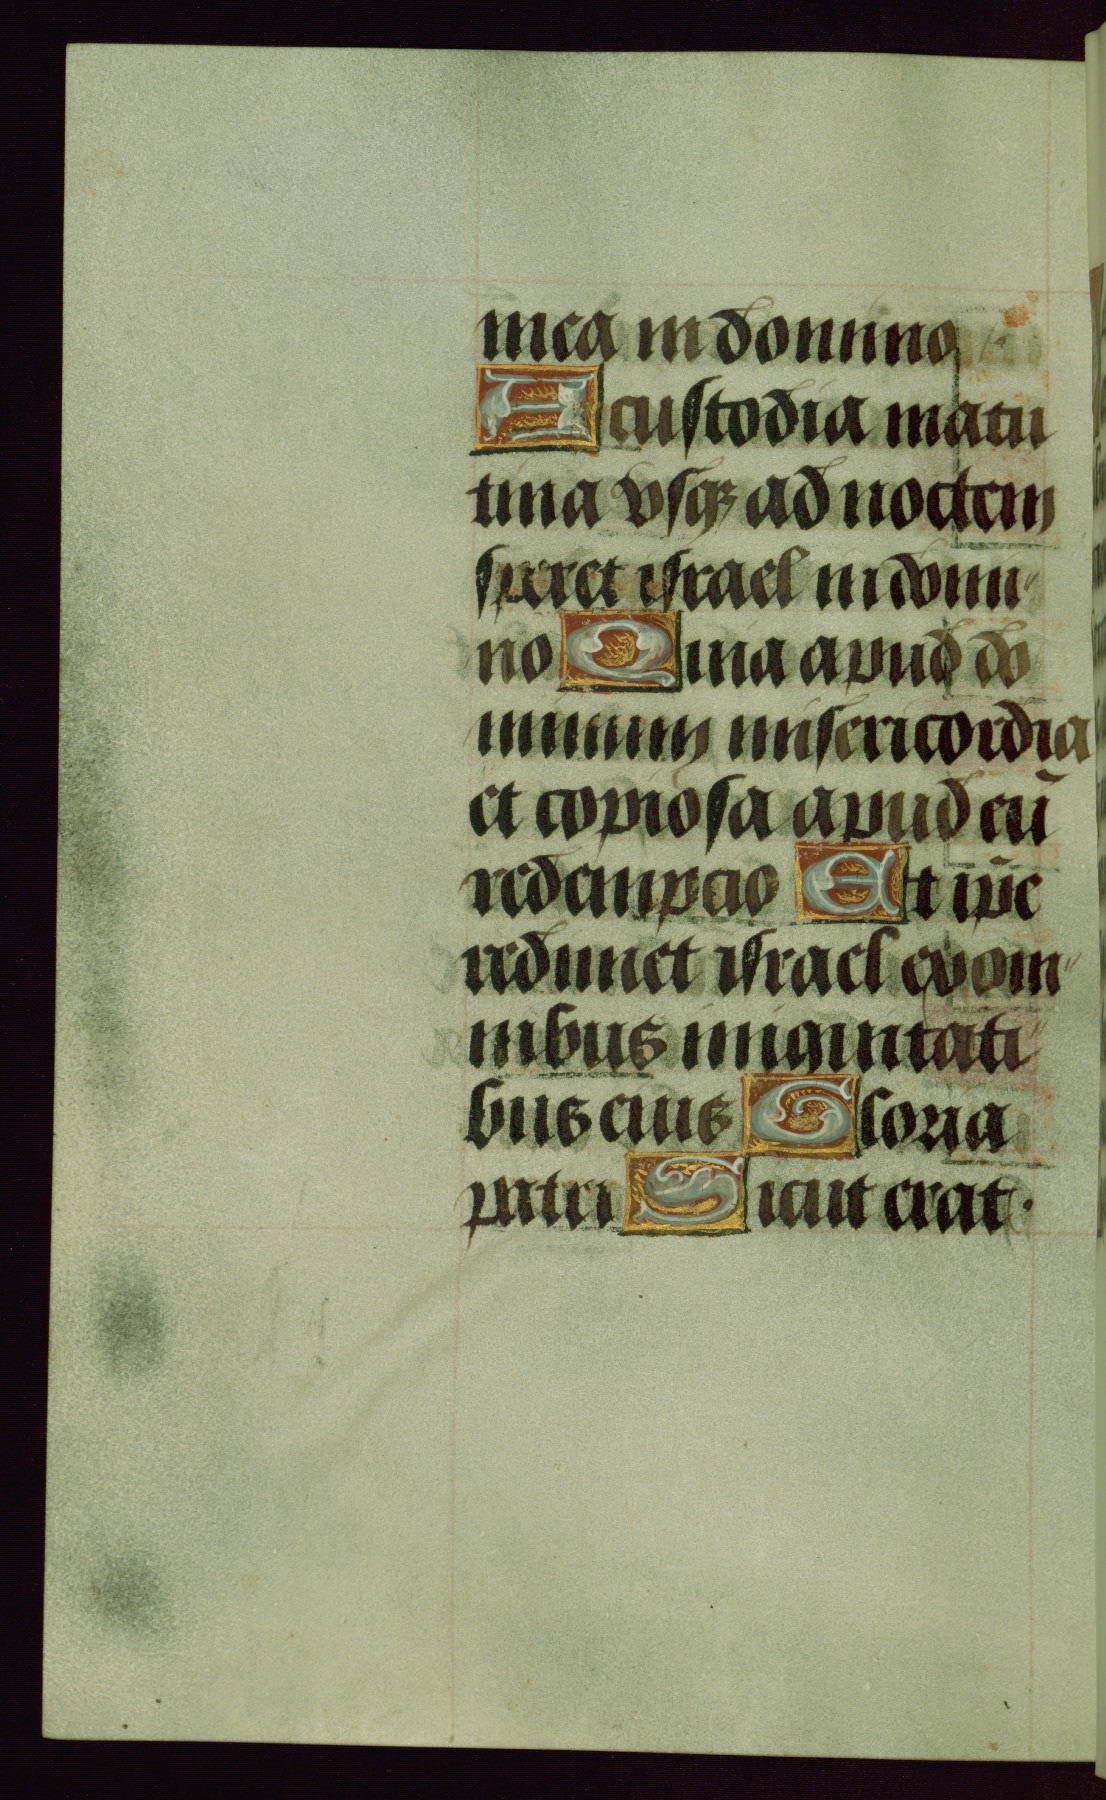 mea in domino
A custodia matu
tina vsqʒ ad noctem
speret israel in domi-
no Quia apud do
minum misericordia
et copiosa apud eū
redempcio Et ip̄e
redimet israel ex om-
nibus iniquitati
bus eius Gloria
patri Sicut erat.